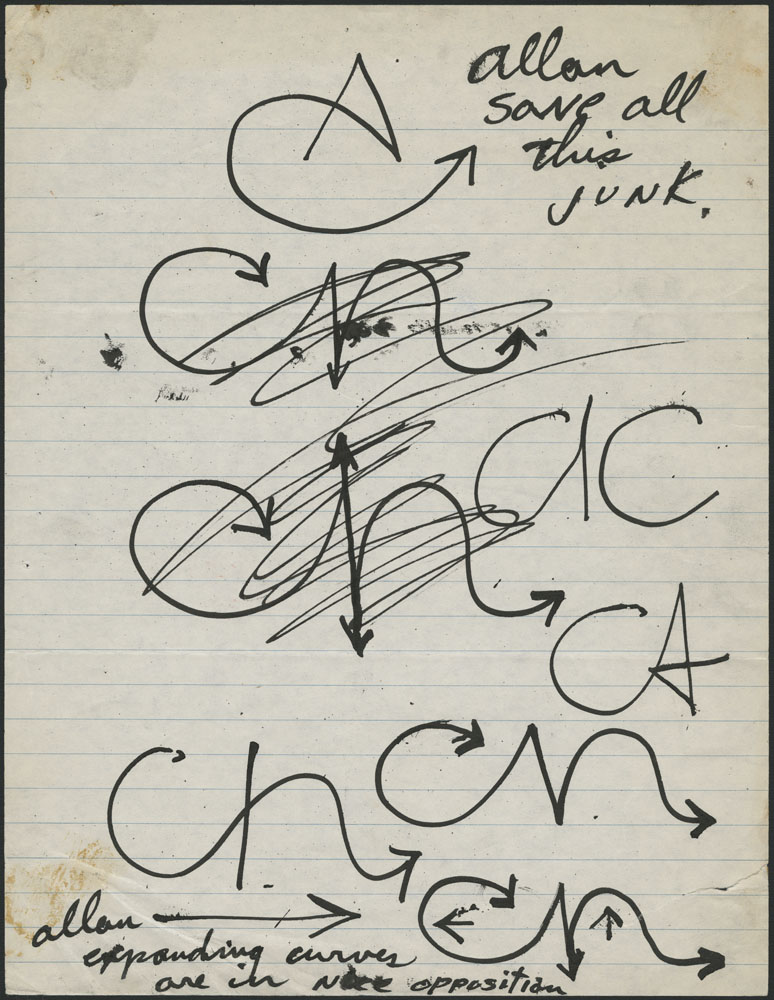 allan
save all
this
JUNK.
CIC
CA
allan
expanding curves
are in NICE opposition